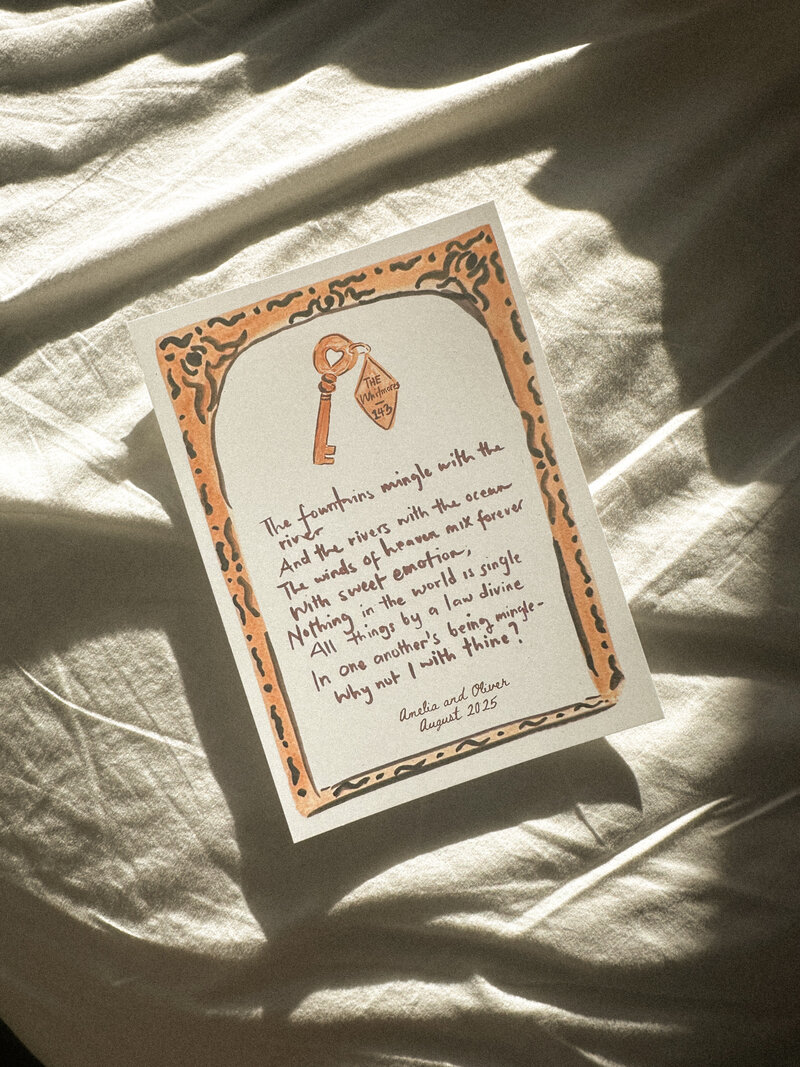 THE
Whitmores
143
The fountains mingle with the
river
And the rivers with the ocean
The winds of heaven mix forever
With sweet emotion,
Nothing in the world is single
All things by a law divine
In one another's being mingle-
Why not I with thine?
Amelia and Oliver
August 2025